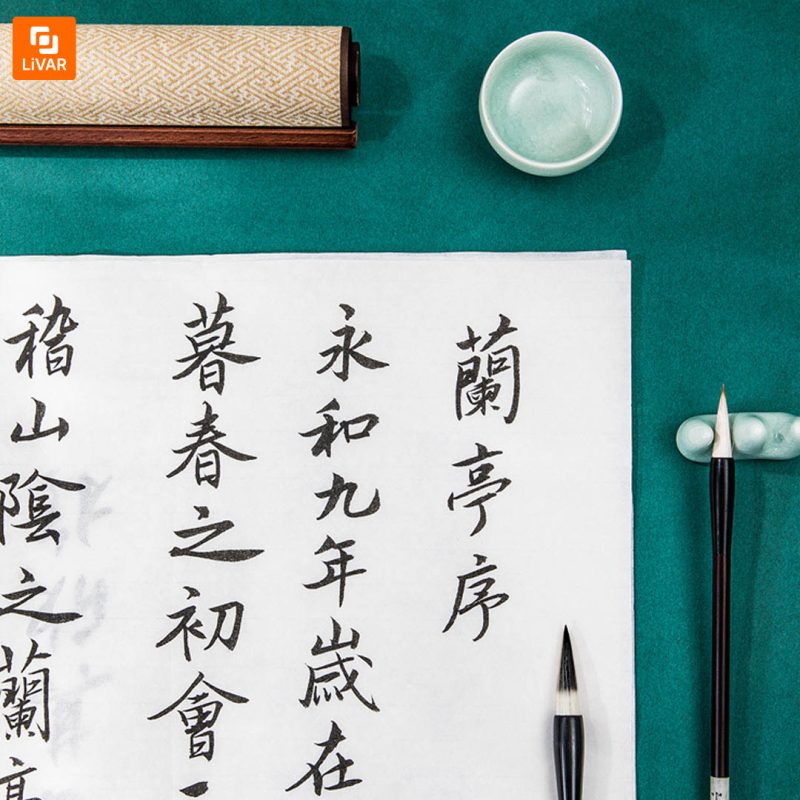 LiVAR
蘭亭序
永和九年歲在
暮春之初會
稽山陰之蘭亭